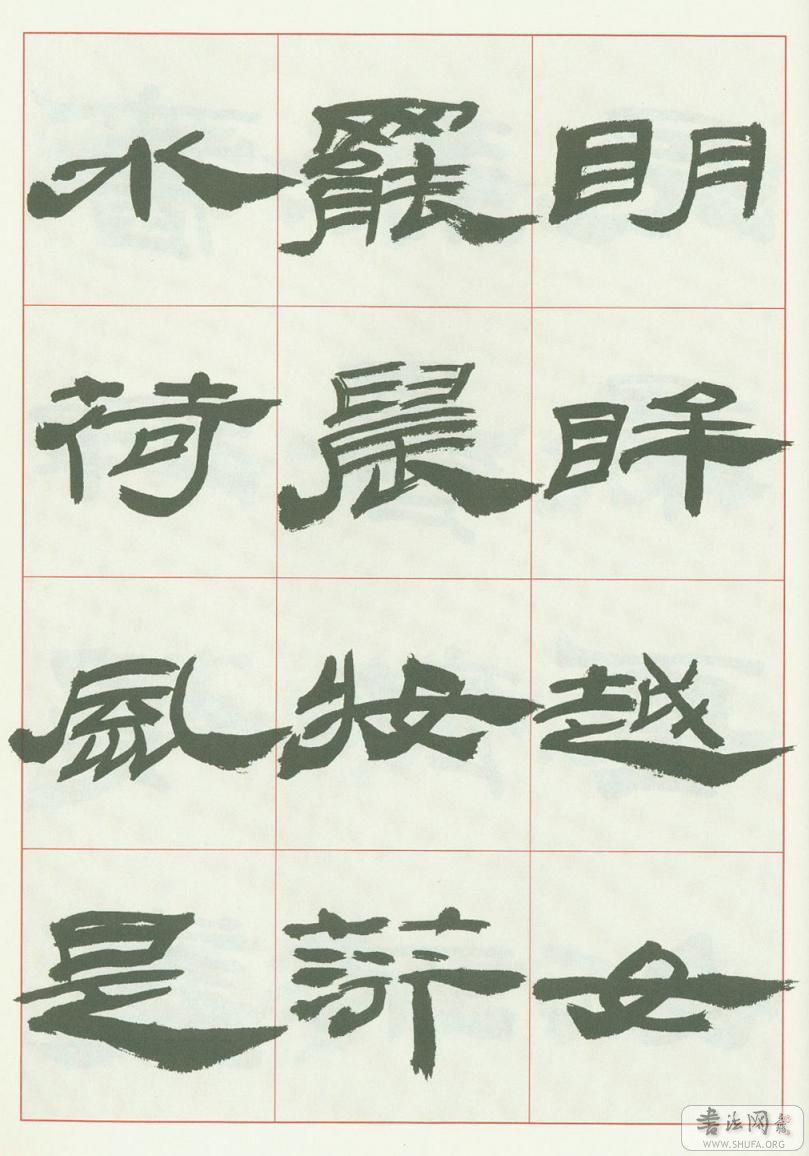 明眸越女
罷晨妝荇
水荷風是
書法网
WWW.SHUFA.ORG